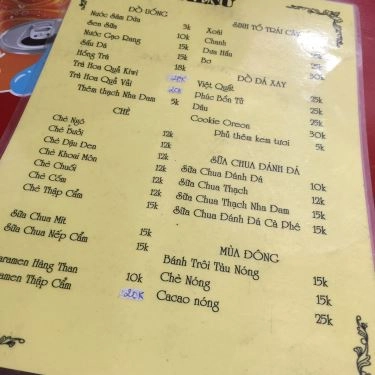 MENU
ĐỒ UỐNG
Nước Sâm Dứa 9k
Sen Sữa
Nước Gạo Rang 10k
Sấu Đá 5k
Hồng Trà 15k
Trà Hoa Quả Kiwi 18k
Trà Hoa Quả Vải 20k
Thêm thạch Nha Đam 20k
5k
CHÈ
Chè Ngô
Chè Bưởi 12k
Chè Đậu Đen 12k
Chè Khoai Môn 12k
Chè Chuối 12k
Chè Cốm 12k
Chè Thập Cẩm 12k
15k
Sữa Chua Mít 15k
Sữa Chua Nếp Cẩm 15k
15k
Caramen Hàng Than
Caramen Thập Cẩm 10k
20k
SINH TỐ TRÁI CÂY
Xoài
Chanh
Dưa Hấu
Bơ
30k
ĐỒ ĐÁ XAY
Việt Quất
Phúc Bồn Tử 25k
Dâu 25k
Cookie Oreon 25k
Phủ thêm kem tươi 30k
5k
SỮA CHUA ĐÁNH ĐÁ
Sữa Chua Đánh Đá 10k
Sữa Chua Thạch 12k
Sữa Chua Thạch Nha Đam 15k
Sữa Chua Đánh Đá Cà Phê 15k
MÙA ĐÔNG
Bánh Trôi Tàu Nóng 15k
Chè Nóng 15k
Cacao nóng 25k